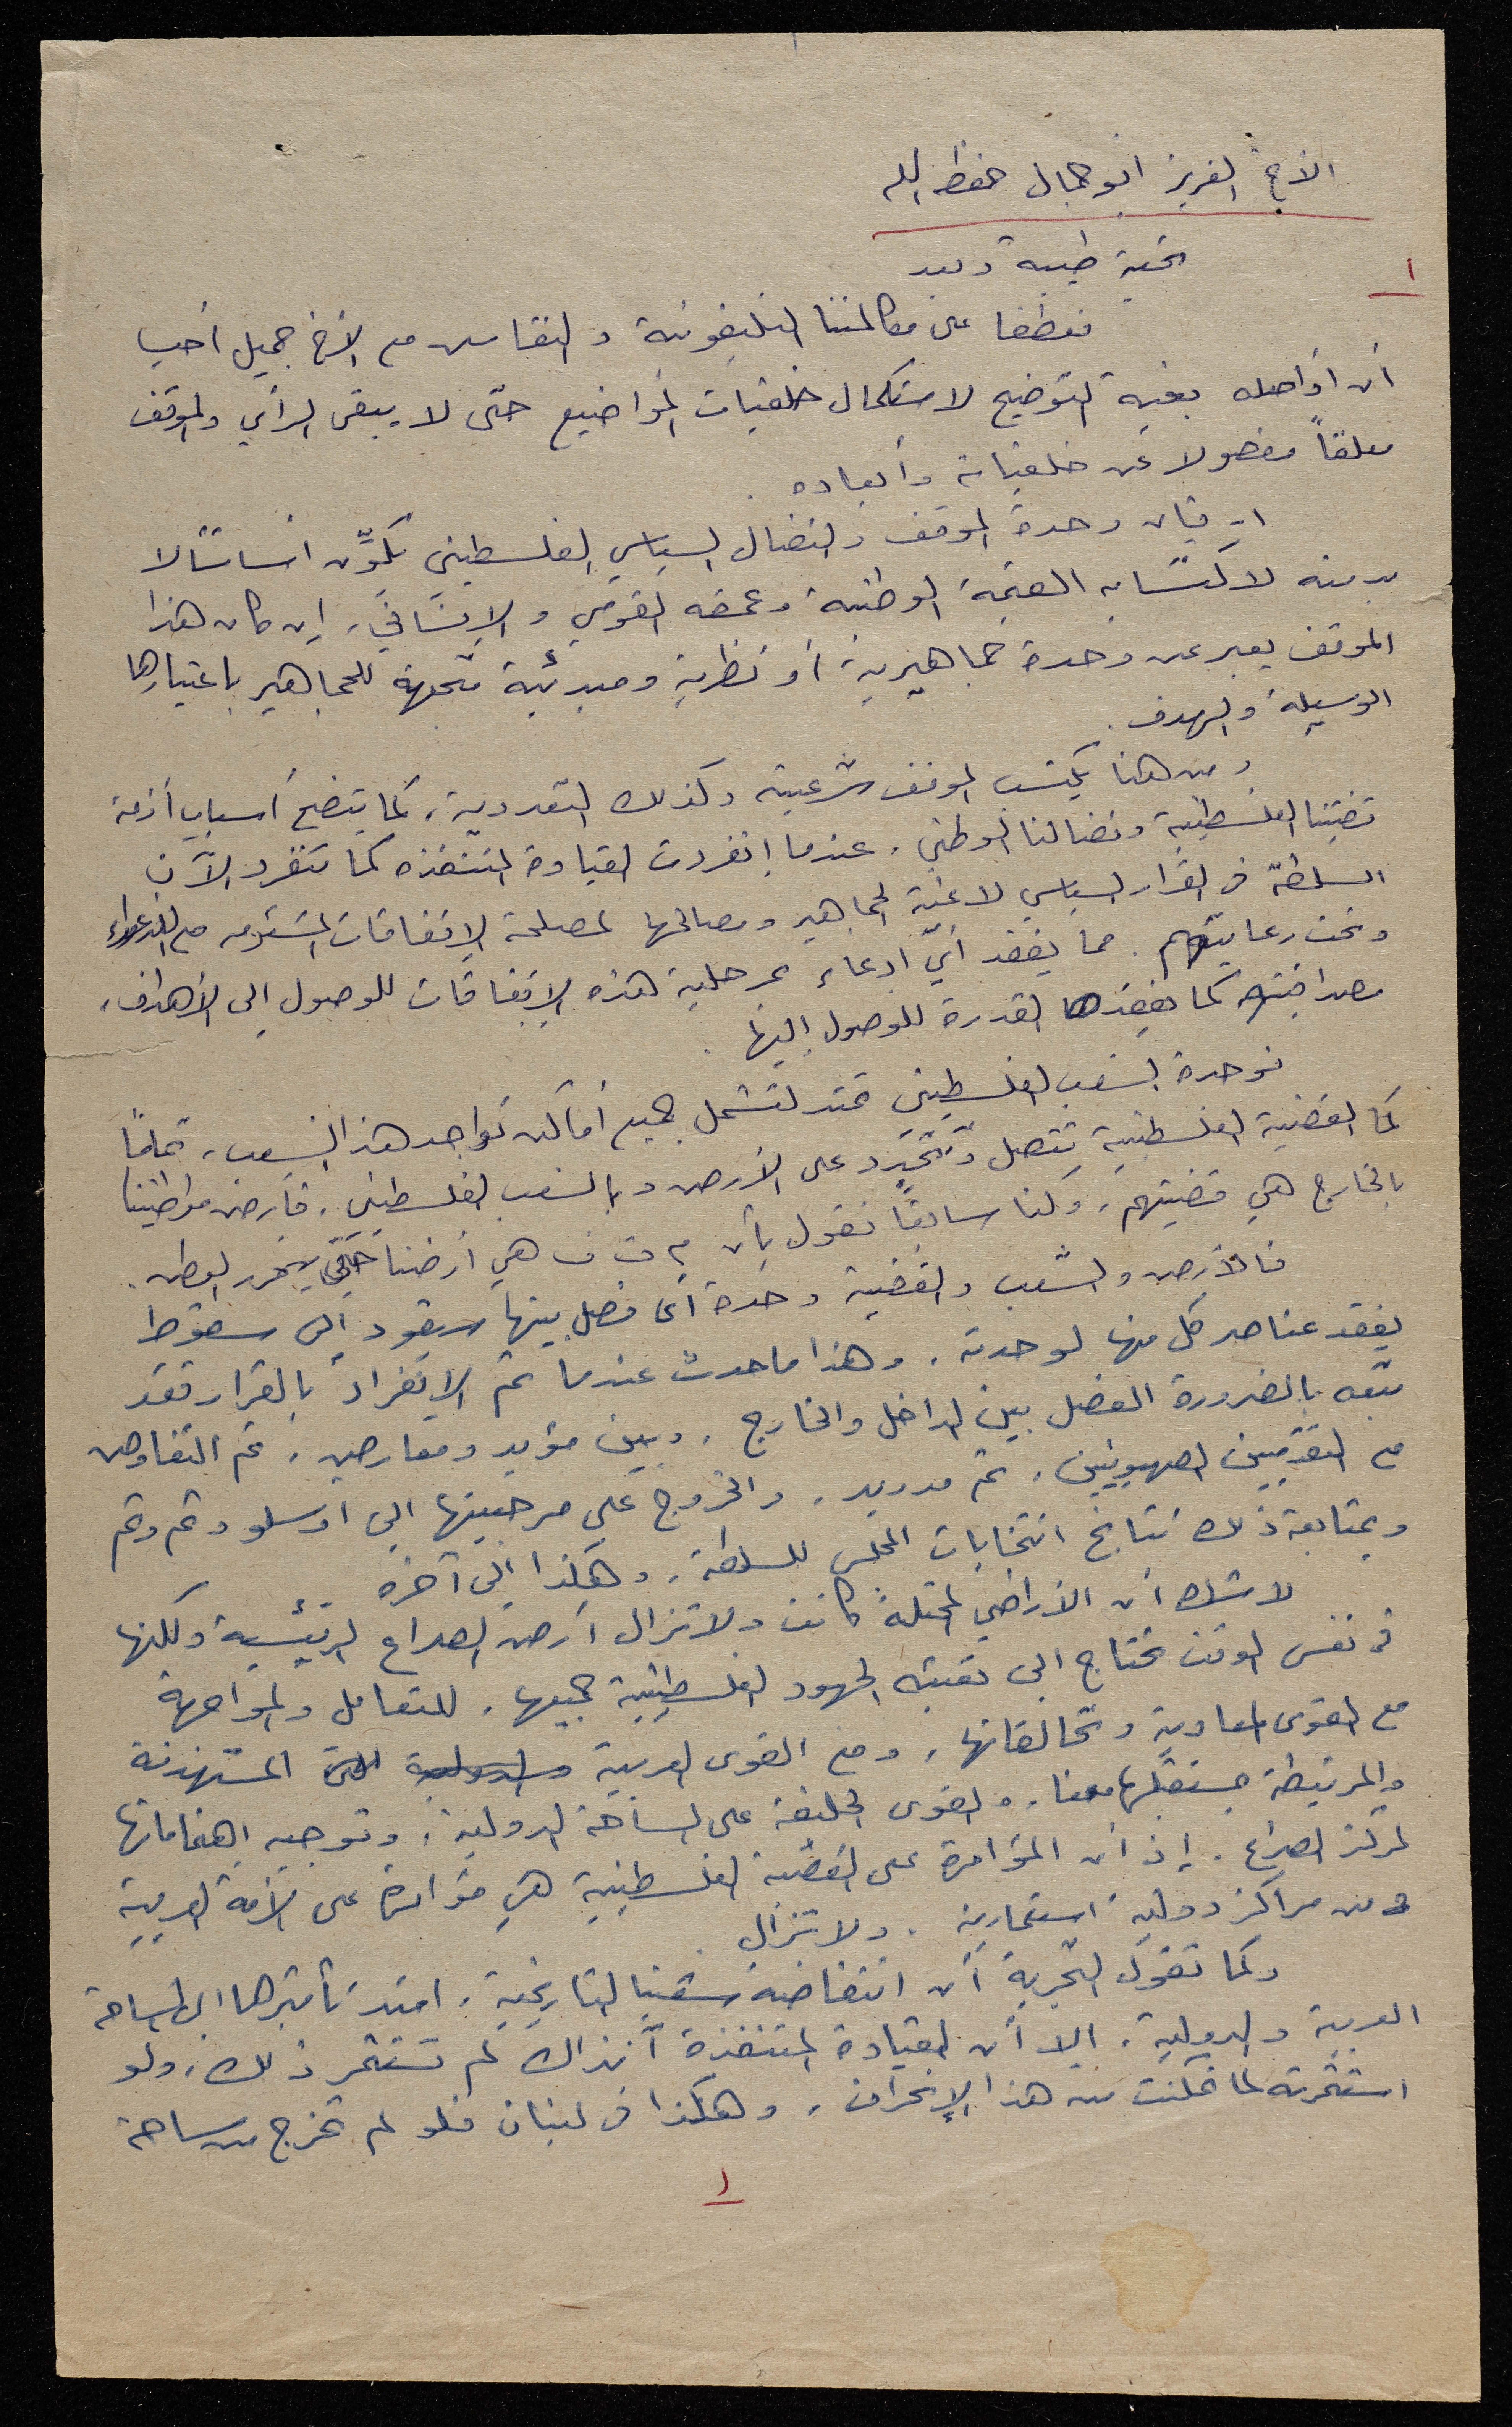 الأخ العزيز ابو جمال حفظه الله
١
تحية طيبة وبعد
فعطفا على مكالمتنا التليفونية والنقاش مع الأخ جميل أحب
أن أواصله بغية التوضيح لاستكمال خلفيات المواضيع حتى لا يبقى الرأي والموقف
معلقاً مفصولا عن خلفياته وأبعاده.
١ - فبان وحدة الموقف والنضال السياسي الفلسطيني تكوّن أساسًا لا
بد منه لاكتسابه القيمة الوطنية وعمقه القومي والإنساني، إن كان هذا
الموقف يعبر عن وحدة جماهيرية أو نظرية ومبدئية متجهة للجماهير باعتبارها
الوسيلة والهدف.
ومن هنا يكتسب الموقف شرعيته وكذلك التعددية، كما يتضح أسباب أزمة
قضيتنا الفلسطينية ونضالنا الوطني، عندما انفردت القيادة المتنفذه كما تنفرد الآن
السلطة في القرار السياسي لاغية الجماهير ومصالحها لمصلحة الاتفاقات المشؤومه مع الاعداء
وتحت رعايتهم. مما يفقد أيّ ادعاء بمرحلية هذه الاتفاقات للوصول إلى الأهداف،
مصداقيته كما يفقدها القدرة للوصول إليها.
فوحدة الشعب الفلسطيني تمتد لتشمل جميع أماكن تواجد هذا الشعب، تماماً
كما القضية الفلسطينية تتصل وتتحدد على الأرض وبالشعب الفلسطيني، فأرض مواطنينا
بالخارج هي قضيتهم، وكنا سابقاً نقول بأن م ت ف هي أرضنا حتى يتحرر الوطن.
فالأرض والشعب والقضية وحدة أي فصل بينها سيقود إلى سقوط
يفقد عناصر كل منها لوحدته، وهذا ما حدث عندما تم الانفراد بالقرار فقد
تبعه بالضرورة الفصل بين الداخل والخارج، وبين مؤيد ومعارض، ثم التفاوض
مع التقدميين الصهيونيين، ثم مدريد، والخروج على مرجعيتها الى اوسلو وثم وثم
وبمتابعة ذلك نتائج انتخابات المجلس للسلطة، وهكذا إلى آخره
لا شك أن الأراضي المحتلة كانت ولا تزال أرض الصراع الرئيسية ولكنها
في نفس الوقت تحتاج الى تعبئة الجهود الفلسطينية جميعها، للتعامل والمواجهة
مع القوى المعادية وتحالفاتها، ومع القوى العربية المستهدفة
والمرتبطة مستقبلها معنا، والقوى الحليفة على الساحة الدولية، وتوجيه اهتماماتها
لمركز الصراع. إذ أن المؤامرة على القضية الفلسطينية هي مؤامرة على الأمة العربية
من مراكز دولية استعمارية، ولا تزال.
وكما تقول التجربة أن انتفاضة شعبنا التاريخية، امتد تأثيرها الى الساحة
العربية والدولية، إلا أن القيادة المتنفذة آنذاك لم تستثمر ذلك، ولو
استثمرته لما تمكنت من هذا الإنحراف، وهكذا في لبنان فلو لم تخرج من ساحة
١